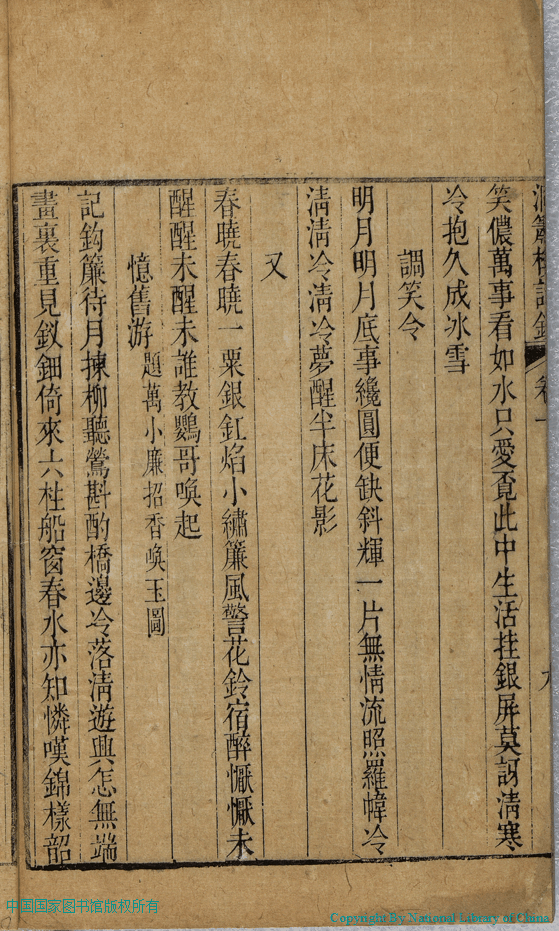 洞簫樓詩鈔 卷一 九
笑儂萬事看如水只愛頁此中生活挂銀屏莫訝清寒
冷抱久成冰雪
調笑令
明月明月底事纔圓便缺斜輝一片無情流照羅幃冷
清清冷清冷夢醒半床花影
又
春曉春曉一粟銀釭焰小繡簾風警花鈴宿醉懨懨未
醒醒未醒未誰教鸚哥喚起
憶舊游 題萬小廉招香喚玉圖
記鈎簾待月揀柳聽鶯斟酌橋邊冷落清遊興怎無端
畫裏重見釵鈿倚來六柱船窗春水亦知憐嘆錦樣韶
中国国家图书馆版权所有
Copyright By National Library of China